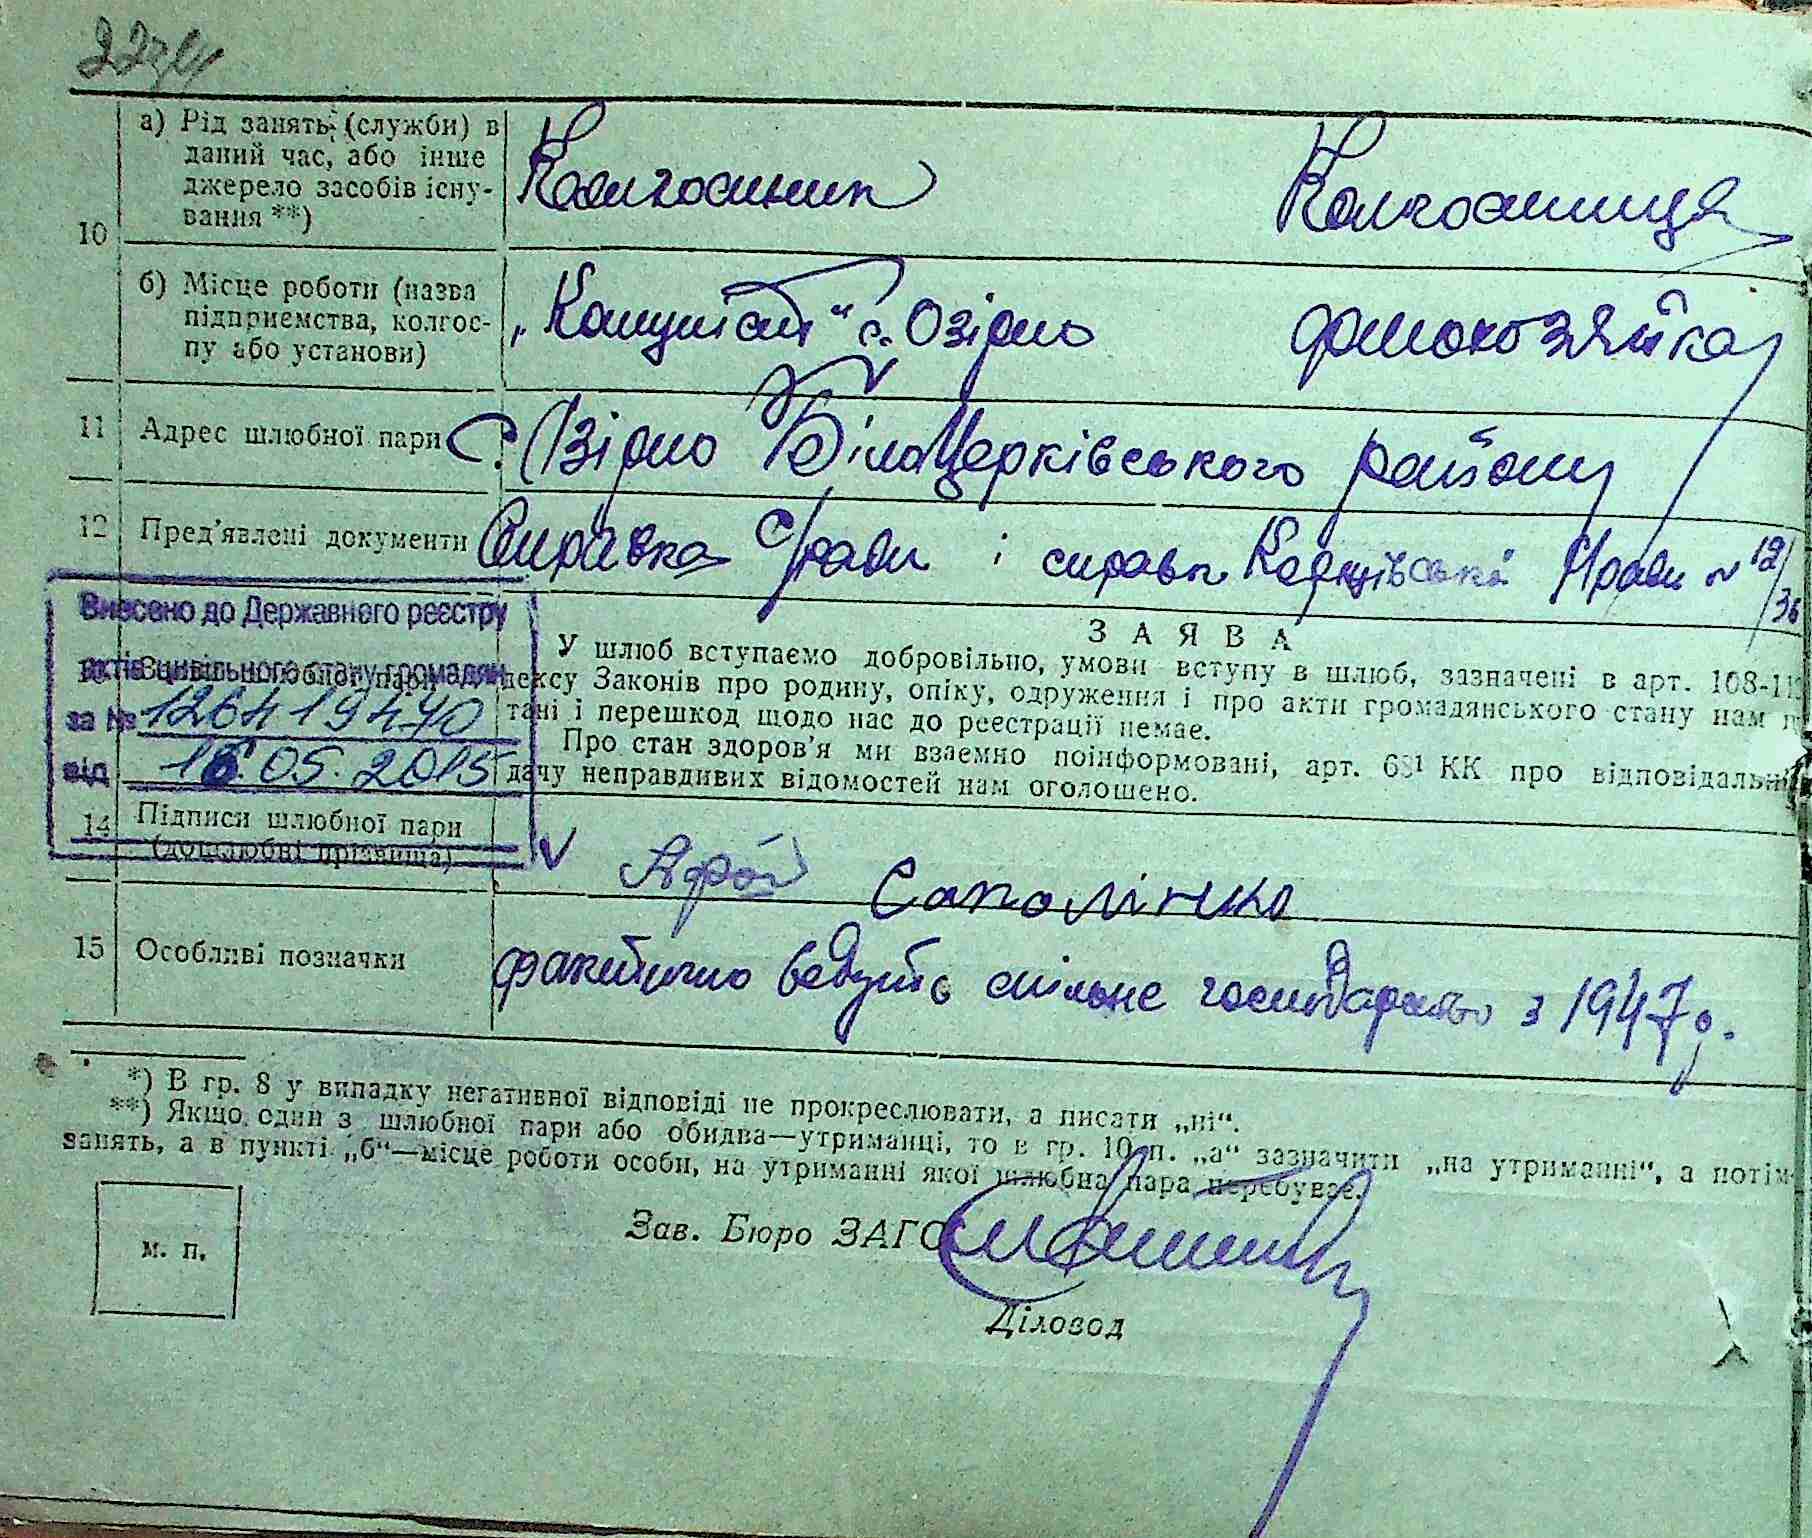 а) Рід занять (служби) в
даний час, або інше
джерело засобів існу-
вання **)
Колгоспник
Колгоспниця
10
б) Місце роботи (назва
підприємства, колгос-
пу або установи)
„Комуніст“ с. Озірно
домохозяйка
11
Адрес шлюбної пари
с. Озірно Білоцерківського району
12
Пред'явлені документи
Справка с/ради і справка с/ради № 12/36
Внесено до Державного реєстру
актів цивільного стану громадян
за № 126419470
від 16.05.2015
ЗАЯВА
У шлюб вступаємо добровільно, умови вступу в шлюб, зазначені в арт. 108-11
дексу Законів про родину, опіку, одруження і про акти громадянського стану нам
тані і перешкод щодо нас до реєстрації немає.
Про стан здоров'я ми взаємно поінформовані, арт. 68¹ КК про відповідальні
дачу неправдивих відомостей нам оголошено.
14
Підписи шлюбної пари
(дошлюбні прізвища)
V
15
Особливі позначки
фактично ведуть спільне господарство з 1947 р.
*) В гр. 8 у випадку негативної відповіді не прокреслювати, а писати „ні“.
**) Якщо один з шлюбної пари або обидва—утриманці, то в гр. 10 п. „а“ зазначити „на утриманні“, а потім
занять, а в пункті „б“—місце роботи особи, на утриманні якої шлюбна пара перебуває.
м. п.
Зав. Бюро ЗАГС
Діловод